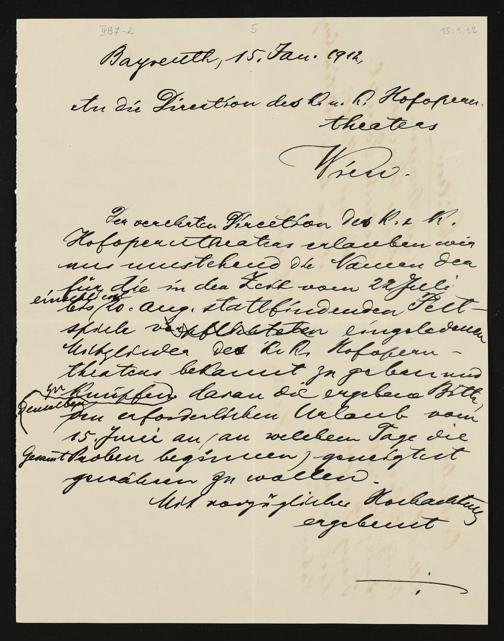 II B7-2 5 15.1.12
Bayreuth, 15. Jan. 1912,
An die Direction des K. u. K. Hofopern-
theaters
Wien.
Der verehrten Direction des K. u. K.
Hofoperntheaters erlauben wir
uns umstehend die Namen der
für die in der Zeit vom 22 Juli
einschl. bis 20. Aug. stattfindenden Fest-
spiele verpflichteten eingeladenen
Mitglieder des K. K. Hofopern-
theaters bekannt zu geben und
knüpfen daran die ergebene Bitte,
denselben den erforderlichen Urlaub vom
15. Juni an (an welchem Tage die
Gesamt Proben beginnen) geneigtest
gewähren zu wollen.
Mit vorzüglicher Hochachtung
ergebenst